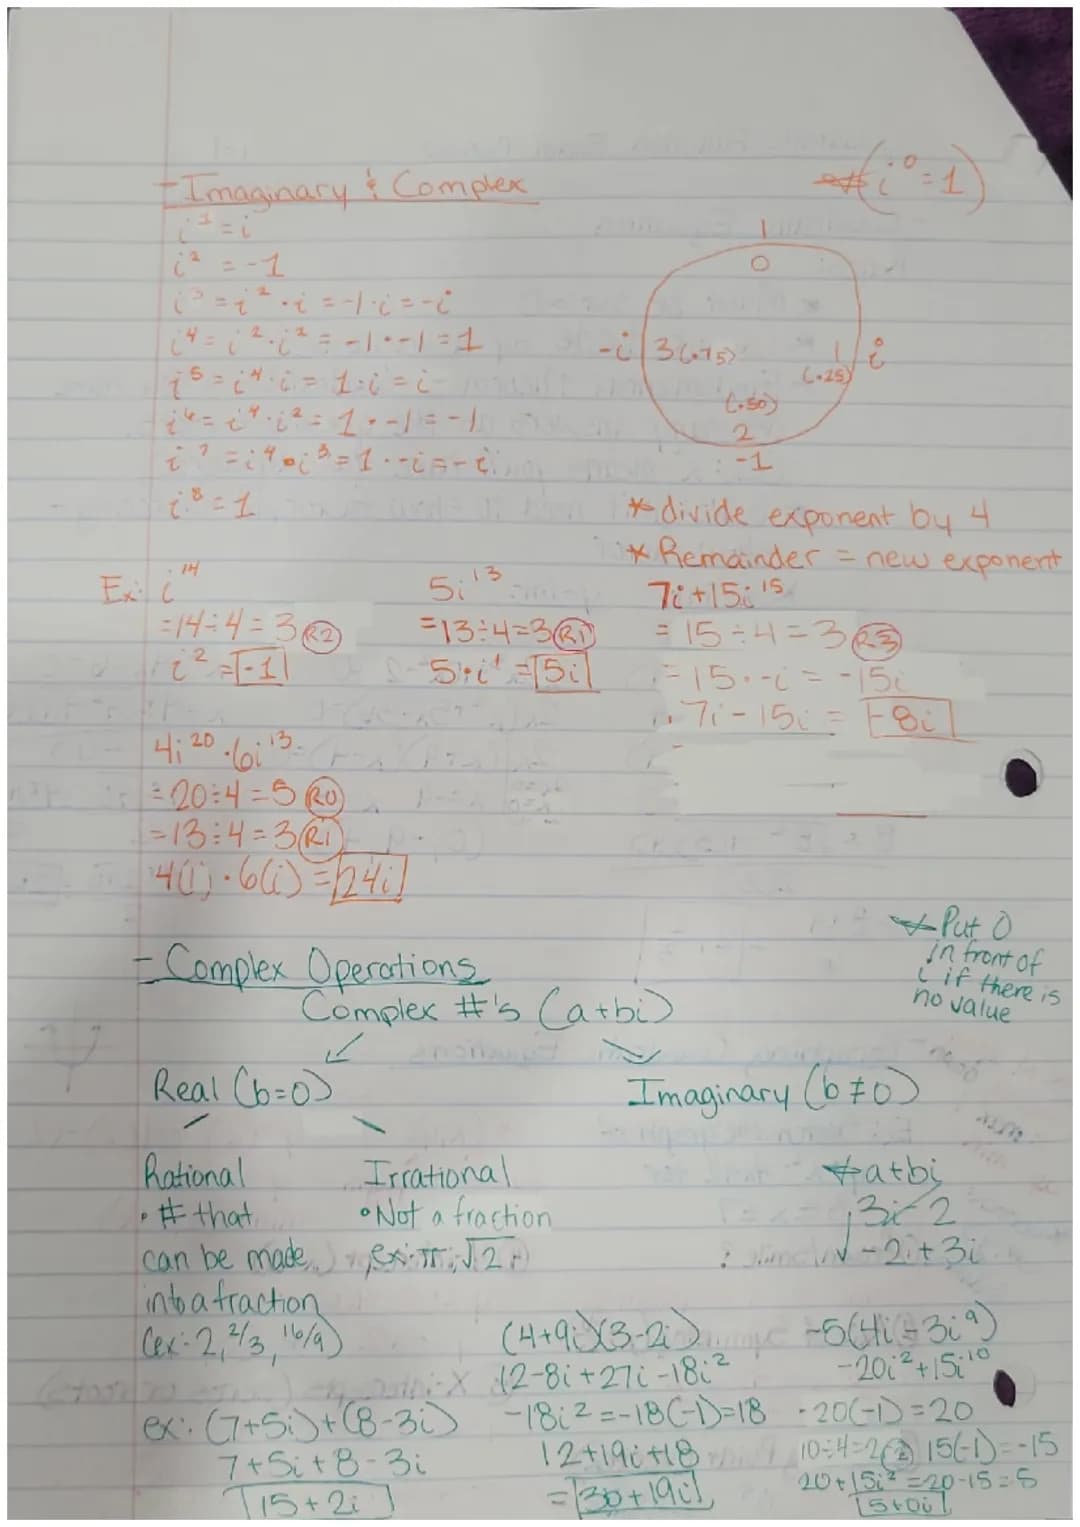 - Imaginary & Complex
* (i⁰=1)
i¹ = i
i² = -1
i³ = i² · i = -1 · i = -i
i⁴ = i² · i² = -1 · -1 = 1
i⁵ = i⁴ · i = 1 · i = i
i⁶ = i⁴ · i² = 1 · -1 = -1
i⁷ = i⁴ · i³ = 1 · -i = -i
i⁸ = 1
1
0
-i 3 (.75) 1 i
(.25)
(.50)
2
-1
* divide exponent by 4
* Remainder = new exponent
Ex: i¹⁴
= 14÷4 = 3 R2
i² = -1
5i¹³
= 13÷4 = 3 R1
5 · i¹ = 5i
7i + 15i¹⁵
= 15÷4 = 3 R3
= 15 · -i = -15i
7i - 15i = -8i
4i²⁰ · 6i¹³
= 20÷4 = 5 R0
= 13÷4 = 3 R1
4(1) · 6(i) = 24i
- Complex Operations
* Put 0
in front of
i if there is
no value
Complex #'s (a+bi)
Real (b=0)
Imaginary (b≠0)
Rational
• # that
can be made
into a fraction
(ex: 2, 2/3, 16/9)
Irrational
• Not a fraction
ex: π, √2
* a+bi
3i-2
-2i+3i
ex: (7+5i)+(8-3i)
7+5i+8-3i
15+2i
(4+9i)(3-2i)
12-8i+27i-18i²
-18i² = -18(-1)=18
12+19i+18
= 30+19i
-5(4i - 3i⁹)
-20i²+15i¹⁰
-20(-1) = 20
10÷4=2 2 15(-1) = -15
20+15i² = 20-15 = 5
5+0i